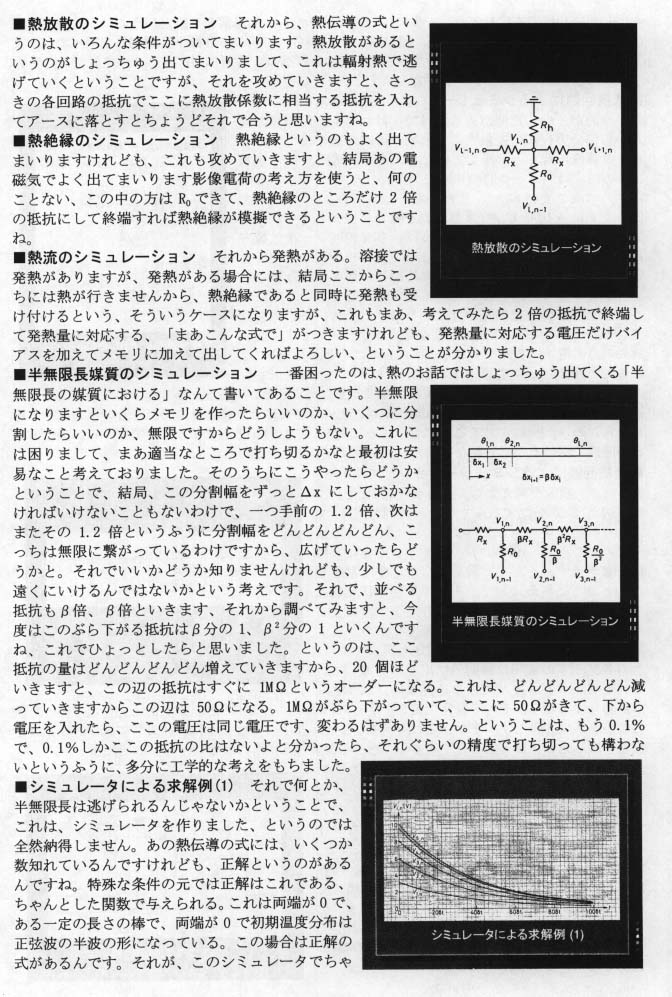 ■熱放散のシミュレーション　それから、熱伝導の式とい
うのは、いろんな条件がついてまいります。熱放散があると
いうのがしょっちゅう出てまいりまして、これは輻射熱で逃
げていくということですが、それを攻めていきますと、さっ
きの各回路の抵抗でここに熱放散係数に相当する抵抗を入れ
てアースに落とすとちょうどそれで合うと思いますね。
■熱絶縁のシミュレーション　熱絶縁というのもよく出て
まいりますけれども、これも攻めていきますと、結局あの電
磁気でよく出てまいります影像電荷の考え方を使うと、何の
ことない、この中の方は R₀ できて、熱絶縁のところだけ 2 倍
の抵抗にして終端すれば熱絶縁が模擬できるということです
ね。
Rh
Vi,n
Vi-1,n
Rx
Rx
Vi+1,n
R₀
Vi,n-1
熱放散のシミュレーション
■熱流のシミュレーション　それから発熱がある。溶接では
発熱がありますが、発熱がある場合には、結局ここからこっ
ちには熱が行きませんから、熱絶縁であると同時に発熱も受
け付けるという、そういうケースになりますが、これもまあ、考えてみたら 2 倍の抵抗で終端し
て発熱量に対応する、「まあこんな式で」がつきますけれども、発熱量に対応する電圧だけバイ
アスを加えてメモリに加えて出してくればよろしい、ということが分かりました。
■半無限長媒質のシミュレーション　一番困ったのは、熱のお話ではしょっちゅう出てくる「半
無限長の媒質における」なんて書いてあることです。半無限
になりますといくらメモリを作ったらいいのか、いくつに分
割したらいいのか、無限ですからどうしようもない。これに
は困りまして、まあ適当なところで打ち切るかなと最初は安
易なこと考えておりました。そのうちにこうやったらどうか
ということで、結局、この分割幅をずっとΔx にしておかな
ければいけないこともないわけで、一つ手前の 1.2 倍、次は
またその 1.2 倍というふうに分割幅をどんどんどんどん、こ
っちは無限に繋がっているわけですから、広げていったらど
うかと。それでいいかどうか知りませんけれども、少しでも
遠くにいけるんではないかという考えです。それで、並べる
抵抗もβ倍、β倍といきます、それから調べてみますと、今
度はこのぶら下がる抵抗はβ分の 1、β²分の 1 といくんです
ね、これでひょっとしたらと思いました。というのは、ここ
抵抗の量はどんどんどんどん増えていきますから、20 個ほど
いきますと、この辺の抵抗はすぐに 1MΩというオーダーになる。これは、どんどんどんどん減
っていきますからこの辺は 50Ωになる。1MΩがぶら下がっていて、ここに 50Ωがきて、下から
電圧を入れたら、ここの電圧は同じ電圧です、変わるはずありません。ということは、もう 0.1%
で、0.1%しかここの抵抗の比はないよと分かったら、それぐらいの精度で打ち切っても構わな
いというふうに、多分に工学的な考えをもちました。
θ1,n θ2,n θi,n
δx₁ δx₂
x
δxi+1=βδxi
V1,n V2,n V3,n
Rx βRx β²Rx
R₀ R₀/β R₀/β²
V1,n-1 V2,n-1 V3,n-1
半無限長媒質のシミュレーション
■シミュレータによる求解例(1)　それで何とか、
半無限長は逃げられるんじゃないかということで、
これは、シミュレータを作りました、というのでは
全然納得しません。あの熱伝導の式には、いくつか
数知れているんですけれども、正解というのがある
んですね。特殊な条件の元では正解はこれである、
ちゃんとした関数で与えられる。これは両端が 0 で、
ある一定の長さの棒で、両端が 0 で初期温度分布は
正弦波の半波の形になっている。この場合は正解の
式があるんです。それが、このシミュレータでちゃ
0 20δt 40δt 60δt 80δt 100δt
シミュレータによる求解例 (1)